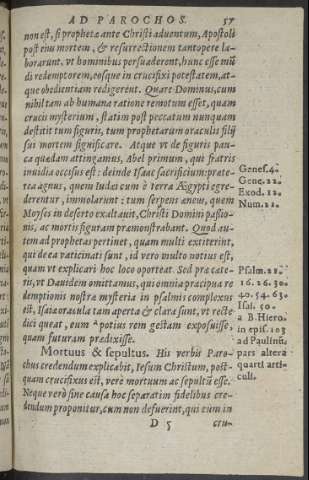 AD PAROCHOS. 57
non est, si prophetæ ante Christi aduentum, Apostoli
post eius mortem, & resurrectionem tantopere la-
borarunt, vt hominibus persuaderent, hunc esse mũ
di redemptorem, eosque in crucifixi potestatem, at-
que obedientiam redigerent. Quare Dominus, cum
nihil tam ab humana ratione remotum esset, quàm
crucis mysterium, statim post peccatum nunquam
destitit tum figuris, tum prophetarum oraculis filij
sui mortem significare. Atque vt de figuris pau-
ca quædam attingamus, Abel primum, qui fratris
inuidia occisus est: deinde Isaac sacrificium: præte-
rea agnus, quem Iudæi cum è terra Ægypti egre-
derentur, immolarunt: tum serpens æneus, quem
Moyses in deserto exaltauit, Christi Domini passio-
nis, ac mortis figuram præmonstrabant. Quod au-
tem ad prophetas pertinet, quàm multi extiterint,
qui de ea vaticinati sunt, id vero multo notius est,
quàm vt explicari hoc loco oporteat. Sed præ cæte-
ris, vt Dauidem omittamus, qui omnia præcipua re
demptionis nostræ mysteria in psalmis complexus
est, Isaiæ oracula tam aperta & clara sunt, vt recte
dici queat, eum ᵃ potius rem gestam exposuisse,
quàm futuram prædixisse.
Mortuus & sepultus. His verbis Paro-
chus credendum explicabit, Iesum Christum, post-
quam crucifixus est, verè mortuum ac sepultũ esse.
Neque verò sine causa hoc separatim fidelibus cre-
dendum proponitur, cum non defuerint, qui eum in
D 5 cru-
Genes. 4.
Gene. 22.
Exod. 12.
Num. 21.
Psalm. 21.
16. 26. 30.
40. 54. 63.
Isai. 50.
a B. Hiero.
in epist. 103
ad Paulinũ,
pars altera
quarti arti-
culi.